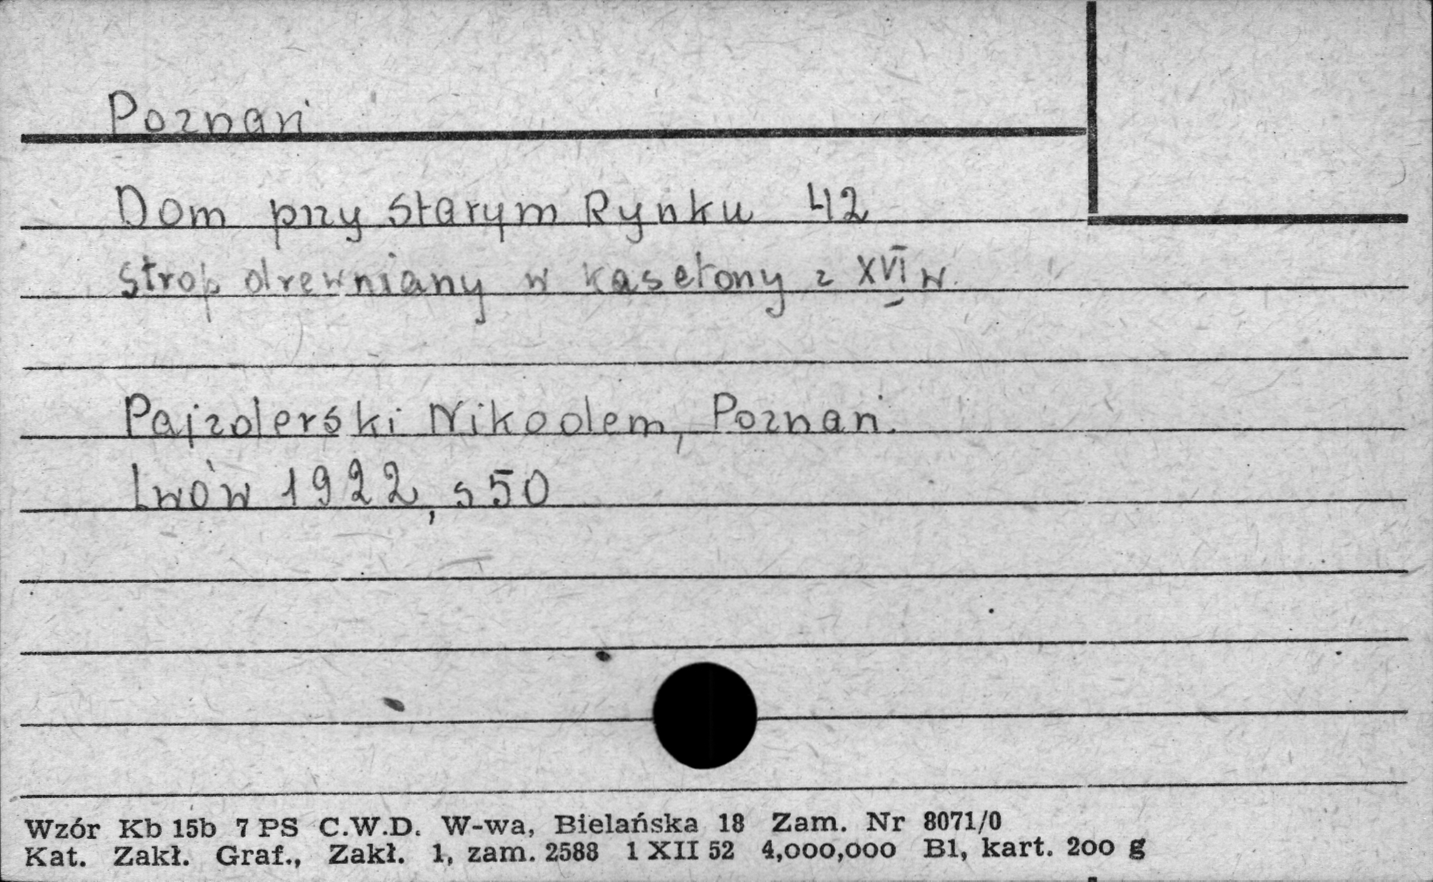 Poznań
Dom przy Starym Rynku 42
strop drewniany w kasetony z XVI w.
Pajzderski Nikodem, Poznań.
Lwów 1922, s 50
Wzór Kb 15b 7 PS C.W.D. W-wa, Bielańska 18 Zam. Nr 8071/0
Kat. Zakł. Graf., Zakł. 1, zam. 2588 1 XII 52 4,000,000 B1, kart. 200 g